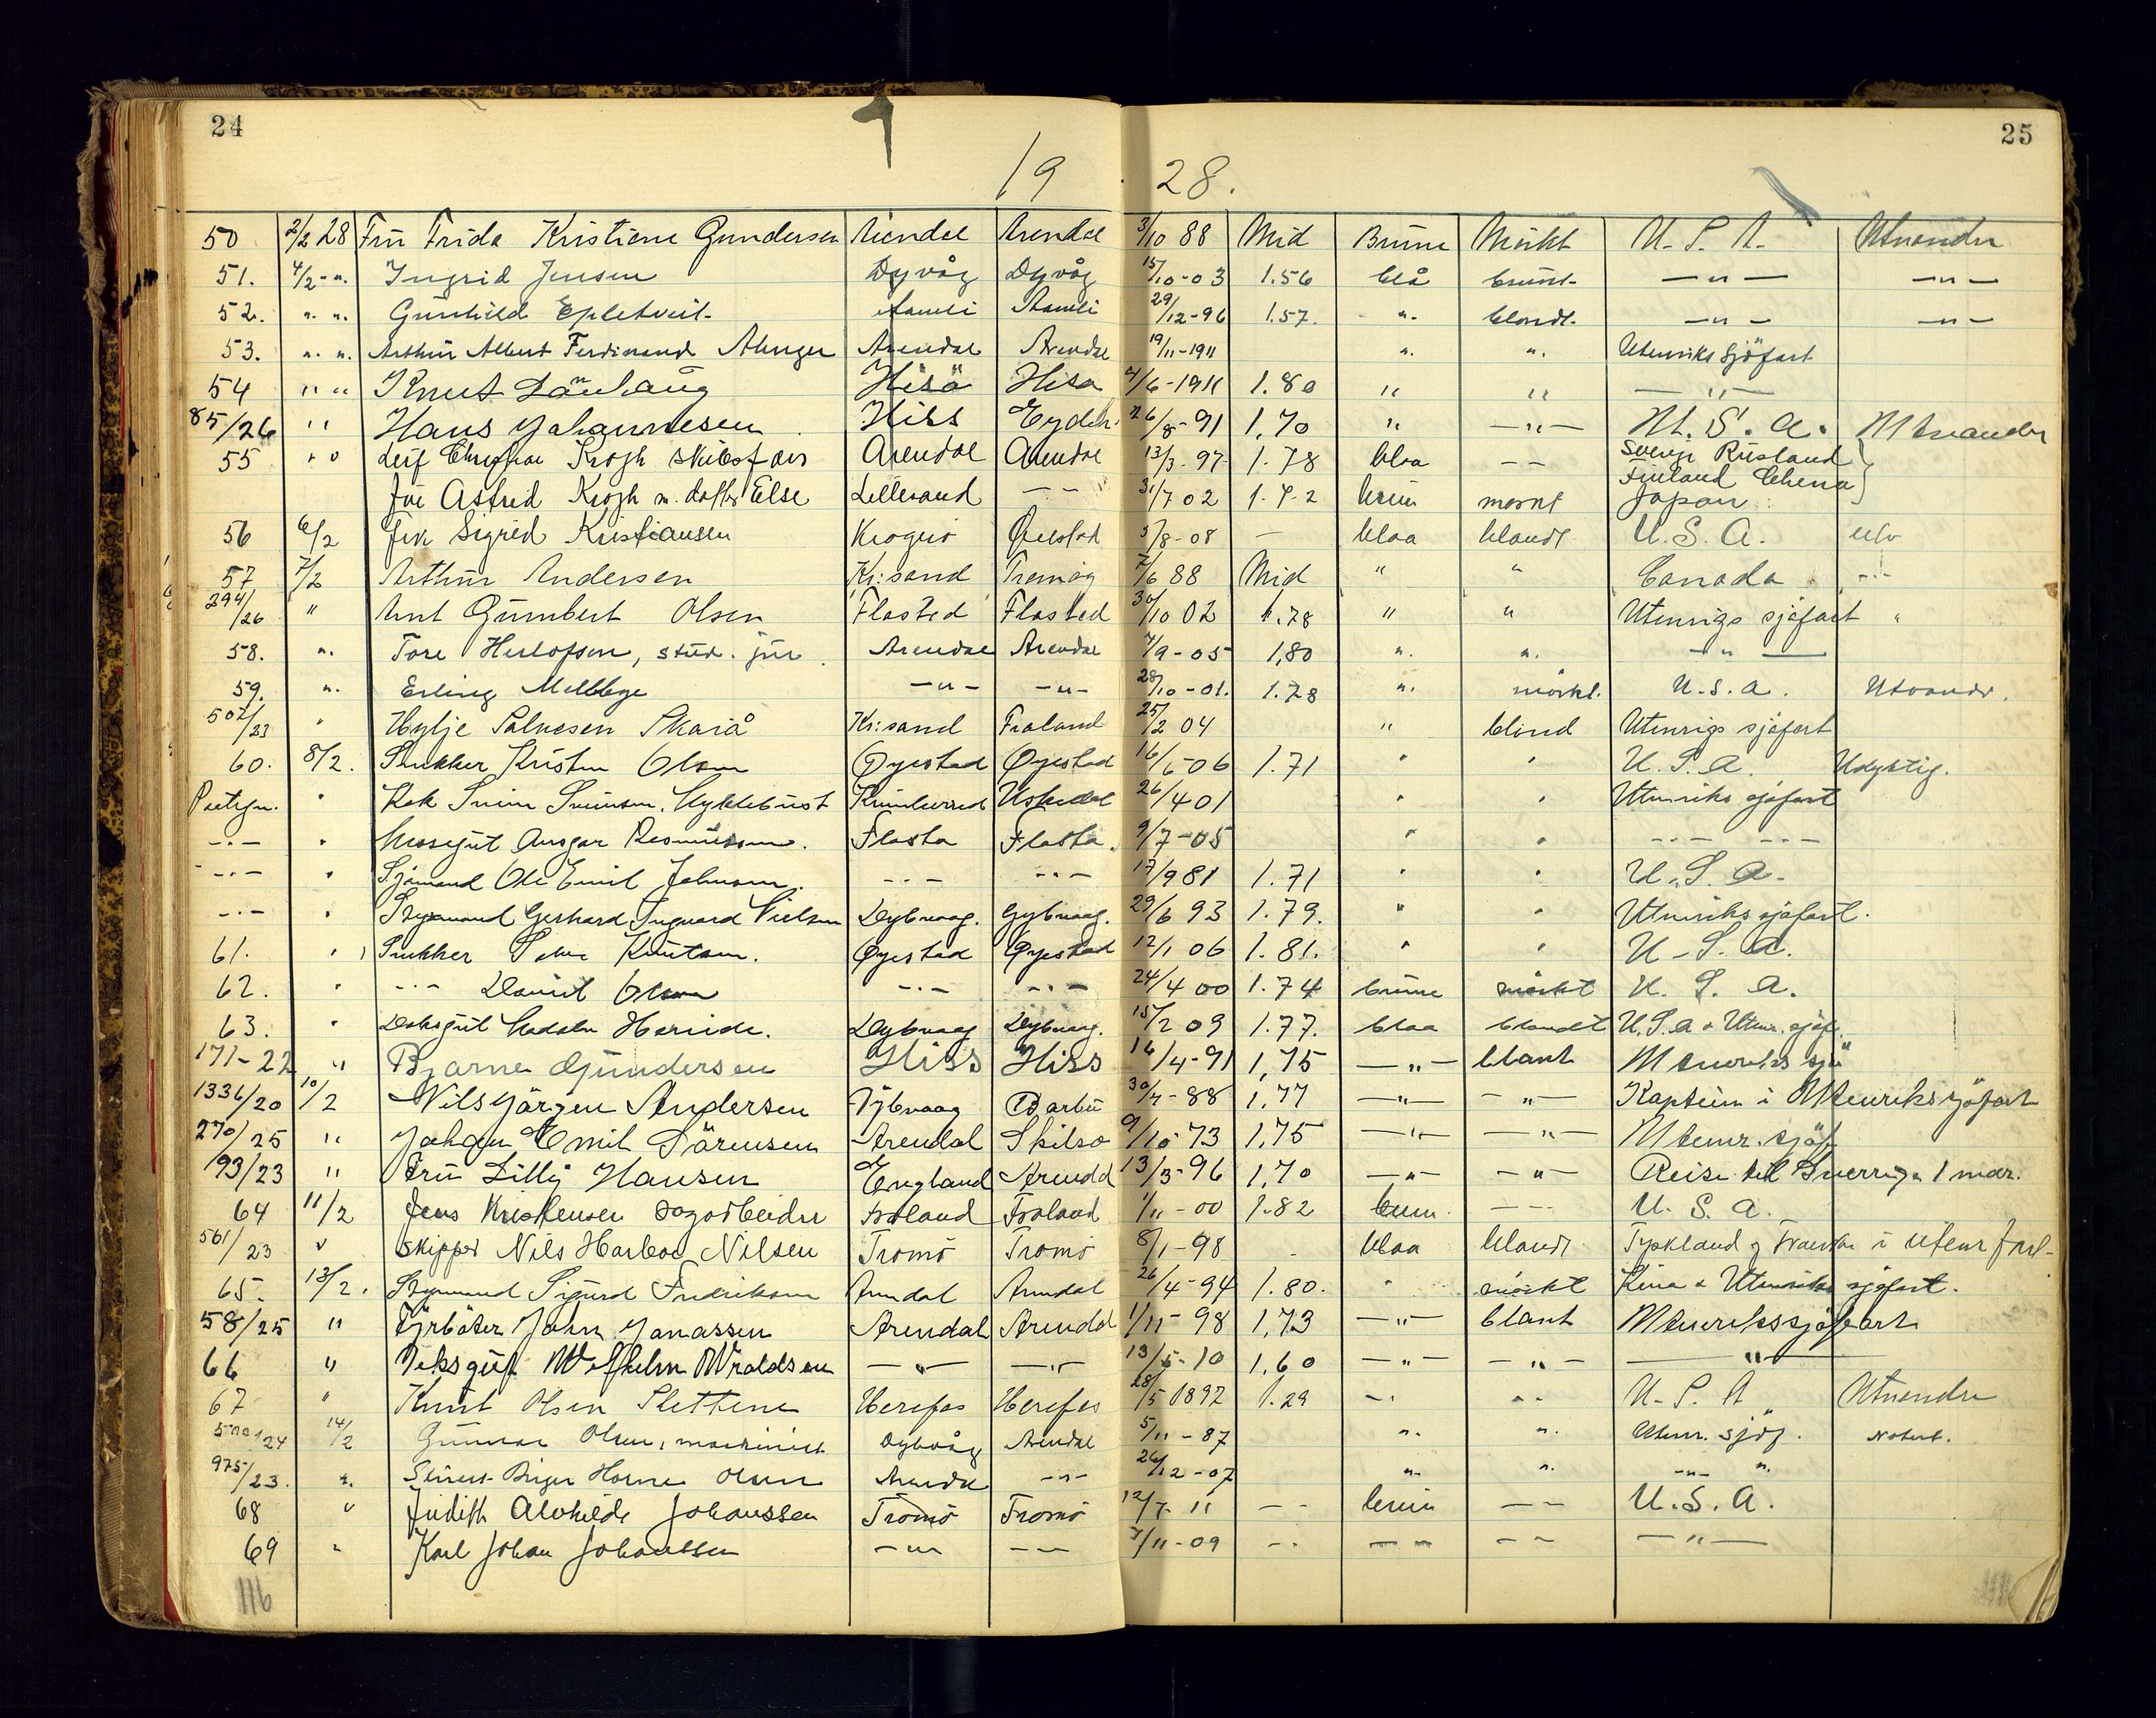 24
25
19 28.
50 2/2 28 Frü Frida Kristiene Gundersen Arendal Arendal 3/10 88 Mid Brune Mörkt U. S. A. Utvandre
51. 4/2 - ". Ingrid Jensen Dyvåg Dyvåg 15/10-03 1.56 blå brunt - " - - " -
52. ". ". Gunhild Epletveit Aamli Aamli 29/12-96 1.57. ". blondt. - " - - " -
53. ". ". Arthür Albert Ferdinand Arendal Arendal 19/11-1911 ". ". Utenriks Sjöfart
54 " " Knut Hisö Hisö 4/6-1911 1.80 " " - " -
85/26 " Hans Johannesen Hiss Eydeh. 26/8-91 1,70 " - " - U. S. A. Utvandre
55 " " Leif Krogh skibsfører Arendal Arendal 13/3-97 1.78 blaa - - Sverige Rüsland
Frü Astrid Krogh m. datter Else Lillesand - - 31/7 02 1.72 brün mørkt Finland China Japan
56 6/2 Frk Sigrid Kristiansen Krogerö Øiestad 5/8-08 - blaa blondt U. S. A. utv
57 7/2 Arthür Andersen Kr:sand Tromøy 7/6 88 Mid " " Canada - " -
294/26 " Gümbert Olsen Flosted Flosted 30/10 02 1.78 " " Utenrigs sjøfart "
58. ". Tore Herlofsen, stüd. jür. Arendal Arendal 7/9-05 1,80 ". ". - " -
59. ". Erling - " - - " - 28/10-01. 1.78 ". mörkt. U.S.a. Utvandr.
502/23 " Salvesen Skaiå Kr:sand Froland 25/2 04 " blond Utenrigs sjøfart
60. 8/2. Snekker Kristen Olsen Øyestad Øyestad 16/6-06 1.71 " " U. S. A. Udygtig.
" Kok 26/4 01 " " Utenriks sjøfart
- " - " Messegüt Ansgar Rasmüssen. Flosta Flosta. 9/7-05 " " - " - - " -
- " - " Sjømand Ole Emil Johnsen. - " - - " - 17/9 81 1.71 " " U. S. A.
- " - " Sjømand Gerhard Ingvard Nielsen Dybvaag. Dybvaag. 29/6 93 1.79. " " Utenriks sjøfart.
61. " Snekker Knütsen. Øyestad Øyestad 12/1 06 1.81. " " U. S. A.
62. " - " - Daniel Olsen - " - - " - 24/4 00 1.74 brüne mörkt U. S. A.
63. " Dæksgüt Dybvaag Dybvaag. 15/2 09 1.77. blaa blondt U. S. A & Utenr. sjøf.
171-22 " Bjarne Gündersen Hiss Hiss 16/4-91 1,75 - " - blont Utenriks sjö
1336/20 10/2 Nils Jörgen Andersen Dybvaag Barbü 30/4-88 1,77 - " - - " - Kaptein i Utenriksjöfart
270/25 " Johan Emil Sörensen Arendal Skilsö 9/10-73 1,75 - " - - " - Utenr. sjöf
193/23 " Frü Lilly Hansen England Arendal 13/3-96 1,70 - " - - " - Reise til Sverrige 1 mdr.
64 11/2 Jens Kristensen Sagarbeider Froland Froland 1/11-00 1.82 brun - - - U. S. A.
561/23 " Skipper Nils Harboe Nilsen Tromö Tromö 8/1-98 - blaa blondt Tyskland og Frankr i utenr fart
65. 13/2. Styrmand Sigürd Fredriksen Arendal Arendal 26/4-94 1.80. " mörkt Kina & Utenriks sjøfart.
58/25 " Fyrböter John Jonassen Arendal Arendal 1/11-98 1,73 - " - blont Utenrikssjöfart
66 " Deksgüt Wilhelm - " - - " - 13/5-10 1,60 - " - - " - - " -
67 " Knüt Olsen Slettene Herefos Herefos 28/5 1892 1.79 - " - " U. S. A Utvandre
14/2 Günnar Olsen, maskinist Dybvåg Arendal 5/11-87 ". ". Utenr. sjöf. Notert.
975/23. ". Birger Horne Olsen Arendal - " - 26/12-07 ". ". - " - ".
68 " Judith Alvhilde Johanssen Tromö Tromö 12/7-11 - - brün - - U. S. A.
69 " Karl Johan Johanssen - " - - - 7/11-09 - - - - - - - " -
116